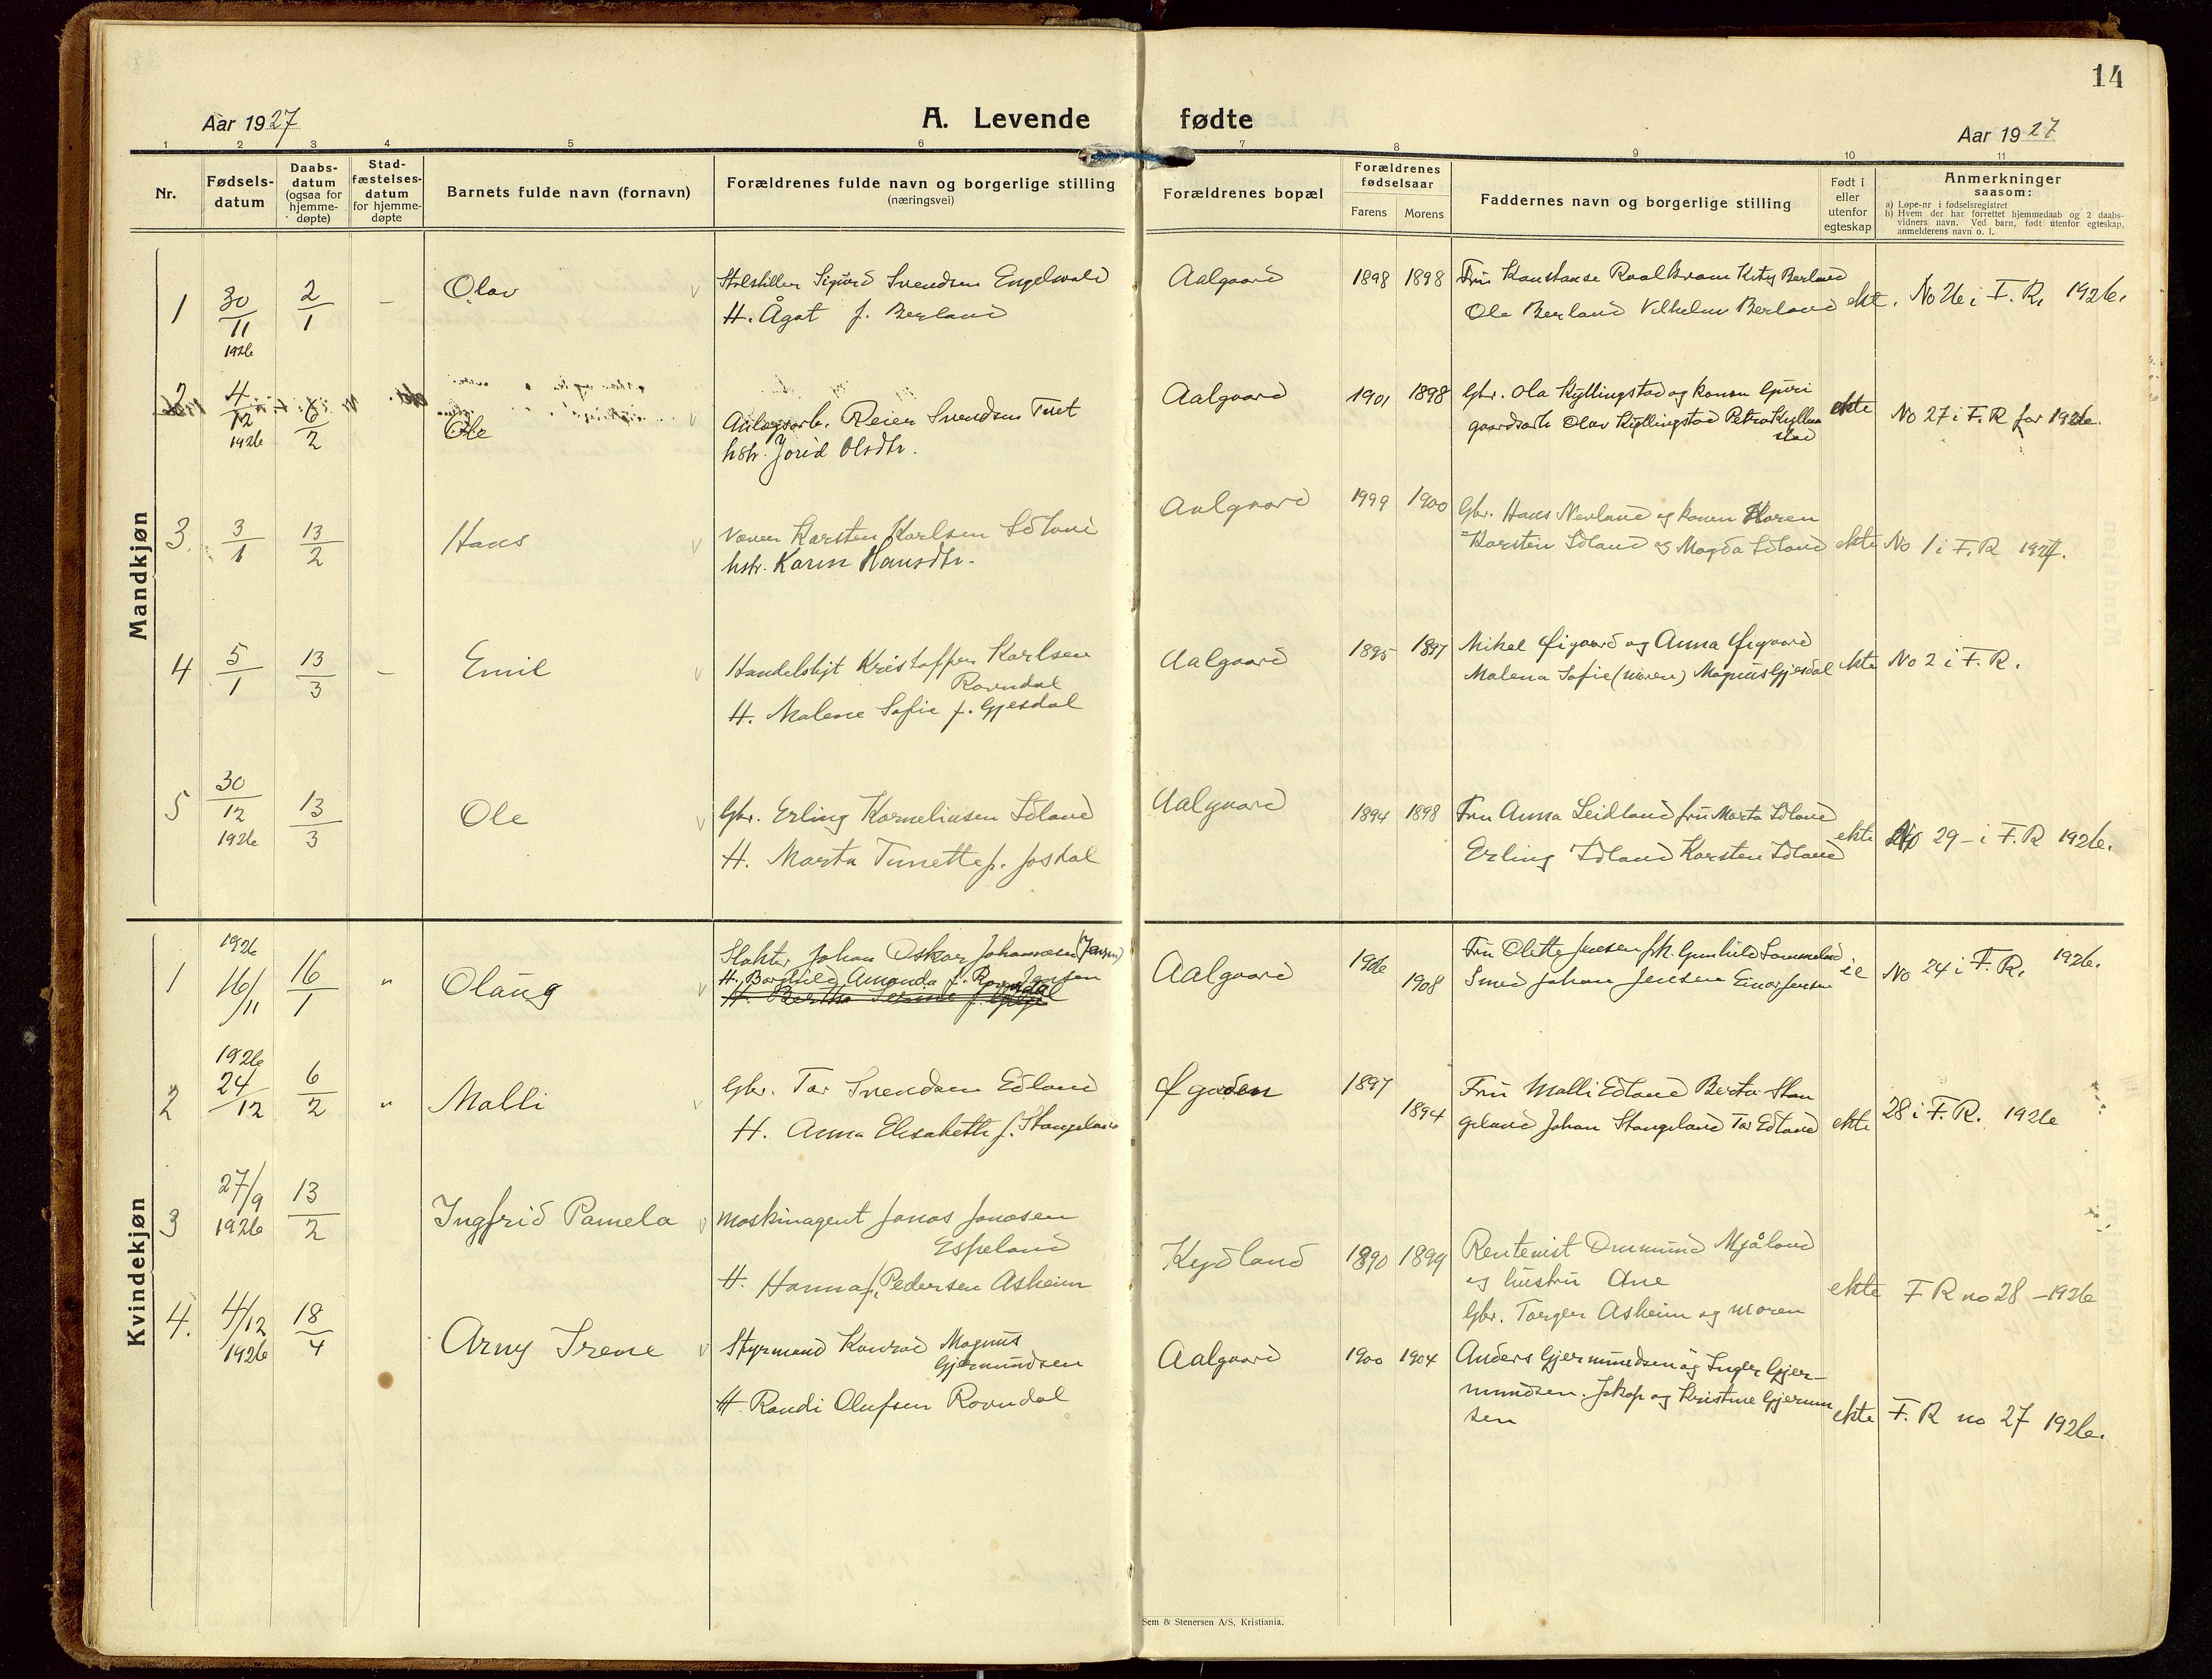 14
Aar 1927
A. Levende fødte
Aar 1927
1 2 3 4 5 6 7 8 9 10 11
Nr.
Fødsels-
datum
Daabs-
datum
(ogsaa for
hjemme-
døpte)
Stad-
fæstelses-
datum
for hjemme-
døpte
Barnets fulde navn (fornavn)
Forældrenes fulde navn og borgerlige stilling
(næringsvei)
Forældrenes bopæl
Forældrenes
fødselsaar
Farens Morens
Faddernes navn og borgerlige stilling
Født i
eller
utenfor
egteskap
Anmerkninger
saasom:
a) Løpe-nr i fødselsregistret
b) Hvem der har forrettet hjemmedaab og 2 daabs-
vidners navn. Ved barn, født utenfor egteskap,
anmelderens navn o. l.
Mandkjøn
1 30/11 1926 2/1 – Olav
Sigurd Svendsen Engelsvold
H. Ågot f. Berland
Aalgaard 1898 1898
Fru Konstanse Raalkvam Kitty Berland
Ole Berland Vilhelm Berland
ekt. No 26 i F. R. 1926.
2 4/12 1926 6/2 Ole
Anlegsarb. Reier Svendsen Tvet
hstr. Jorid Olsdtr.
Aalgaard 1901 1898
Gbr. Ola Kyllingstad og konen Guri
gaardsarb Olav Kyllingstad Petra Kyllin
stad
ekte No 27 i F. R for 1926.
3 3/1 13/2 Hans
Karsten Karlsen Idland
hstr. Karen Hansdtr.
Aalgaard 1999 1900
Gbr. Hans Nevland og konen Karen
Karsten Idland og Magda Idland
ekte No 1 i F. R 1927.
4 5/1 13/3 – Emil
Handelsbjt Kristoffer Karlsen
Ravndal
H. Malene Sofie f. Gjesdal
Aalgaard 1895 1897
Mikal Øigaard og Anna Øigaard
Malena Sofie (moren) Magnus Gjesdal
ekte No 2 i F. R.
5 30/12 1926 13/3 Ole
Gbr. Erling Korneliusen Idland
H. Marta Tunette f. Josdal
Aalgaard 1894 1898
Fru Anna Leidland fru Marta Idland
Erling Idland Karsten Idland
ekte No 29 – i F. R 1926.
Kvindekjøn
1 1926 16/11 16/1 " Olaug
Slakter Johan Oskar Johannesen (Jensen)
H. Borghild Amanda f. Ravndal
Aalgaard 1906 1908
Fru Olette Jensen frk. Gunhild Sammeland
Smed Johan Jensen Einar Jensen
No 24 i F. R. 1926.
2 1926 24/12 6/2 " Malli
Gbr. Tor Svendsen Edland
H. Anna Elisabeth f. Stangeland
Øgaden 1897 1894
Fru Malli Edland Berta Stan
geland Johan Stangeland Tor Edland
ekte 28 i F. R. 1926
3 27/9 1926 13/2 Ingfrid Pamela
Maskinagent Jonas Jonasen
Espeland
H. Hanna f. Pedersen Asheim
Kydland 1890 1899
Rentenist Ommund Mjåland
og hustru Ane
Gbr. Torger Asheim og moren
ekte F R no 28 – 1926
4. 4/12 1926 18/4 Arny Irene
Styrmand Konrad Magnus
Gjermundsen
H Randi Olufsen Ravndal
Aalgaard 1900 1904
Anders Gjermundsen og Inger Gjer–
mundsen. Jakop og Kristine Gjermun
sen
ekte F. R no 27 1926.
Sem & Stenersen A/S, Kristiania.